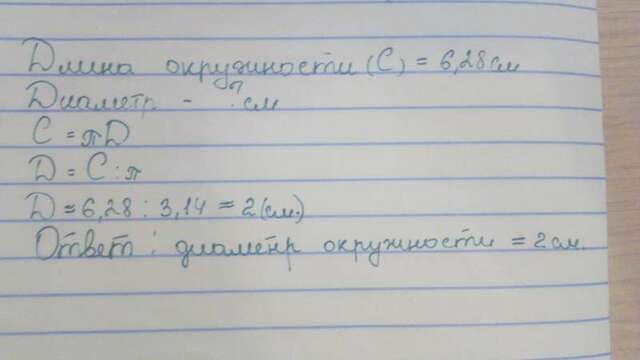 Длина окружности (C) = 6,28 см
Диаметр - ? см
C = πD
D = C : π
D = 6,28 : 3,14 = 2 (см.)
Ответ : диаметр окружности = 2 см.